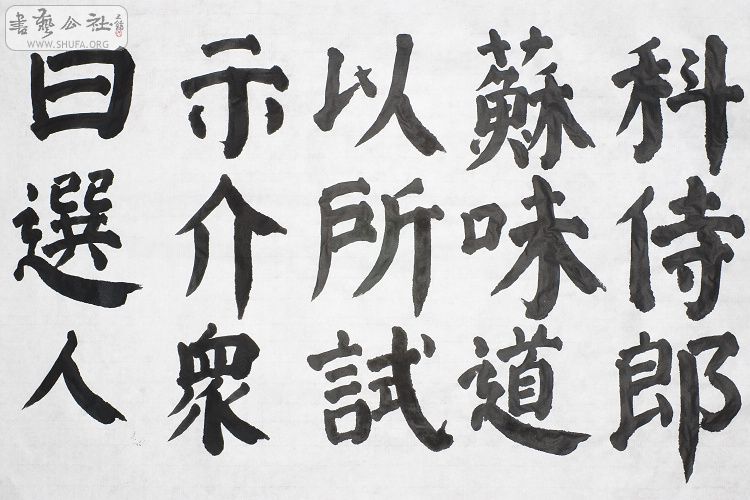 科侍郎
蘇味道
以所試
示介衆
曰選人
書藝公社
WWW.SHUFA.ORG